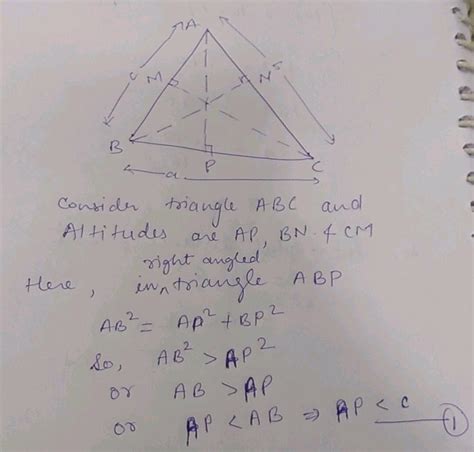 A
c
M
N
b
B
P
C
a
Consider triangle ABC and
Altitudes are AP, BN & CM
right angled
Here, in ^ triangle ABP
AB² = AP² + BP²
So, AB² > AP²
or AB > AP
or AP < AB ⇒ AP < c
①